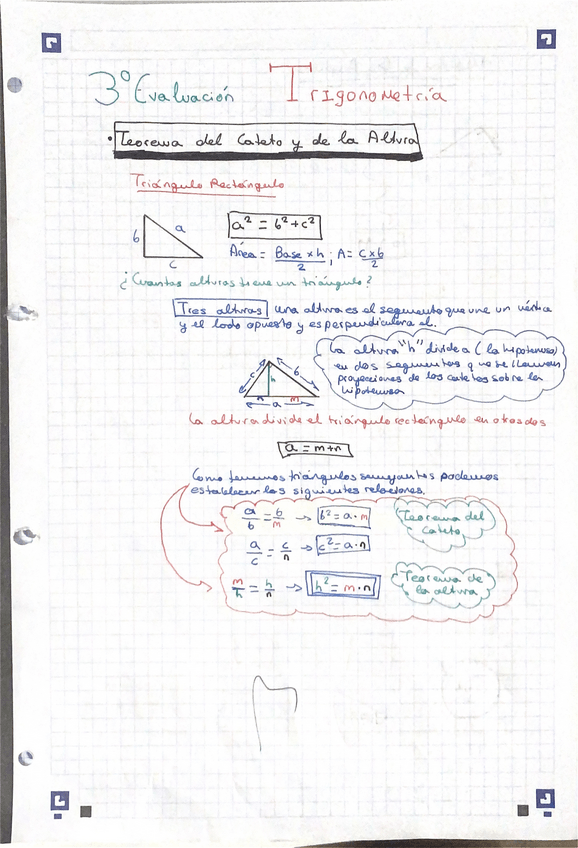 3º Evaluación Trigonometría
• Teorema del Cateto y de la Altura
Triángulo Rectángulo
b a c
a² = b² + c²
Área = Base x h / 2 ; A = c x b / 2
¿Cuantas alturas tiene un triángulo?
Tres alturas una altura es el segmento que une un vértice
y el lado opuesto y es perpendicular a él.
La altura "h" divide a (la hipotenusa)
en dos segmentos q se llaman
proyecciones de los catetos sobre la
hipotenusa
c h b
n m
a
La altura divide el triángulo rectángulo en otros dos
a = m + n
Como tenemos triángulos semejantes podemos
establecer las siguientes relaciones.
a/b = b/m → b² = a · m Teorema del
Cateto
a/c = c/n → c² = a · n
m/h = h/n → h² = m · n Teorema de
la altura